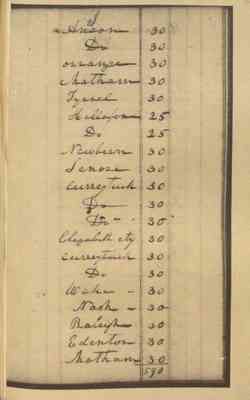 $
Anson 30
Do 30
orrange 30
Chatham 30
Tyrrel 30
Hillsbro 25
Do 25
Newbern 30
Lenoze 30
Currytuck 30
Do 30
Do " 30
Elizabeth cty 30
Currytuck 30
Do 30
Wake - 30
Nash - 30
Raleigh 30
Edenton 30
Chatham 30
590